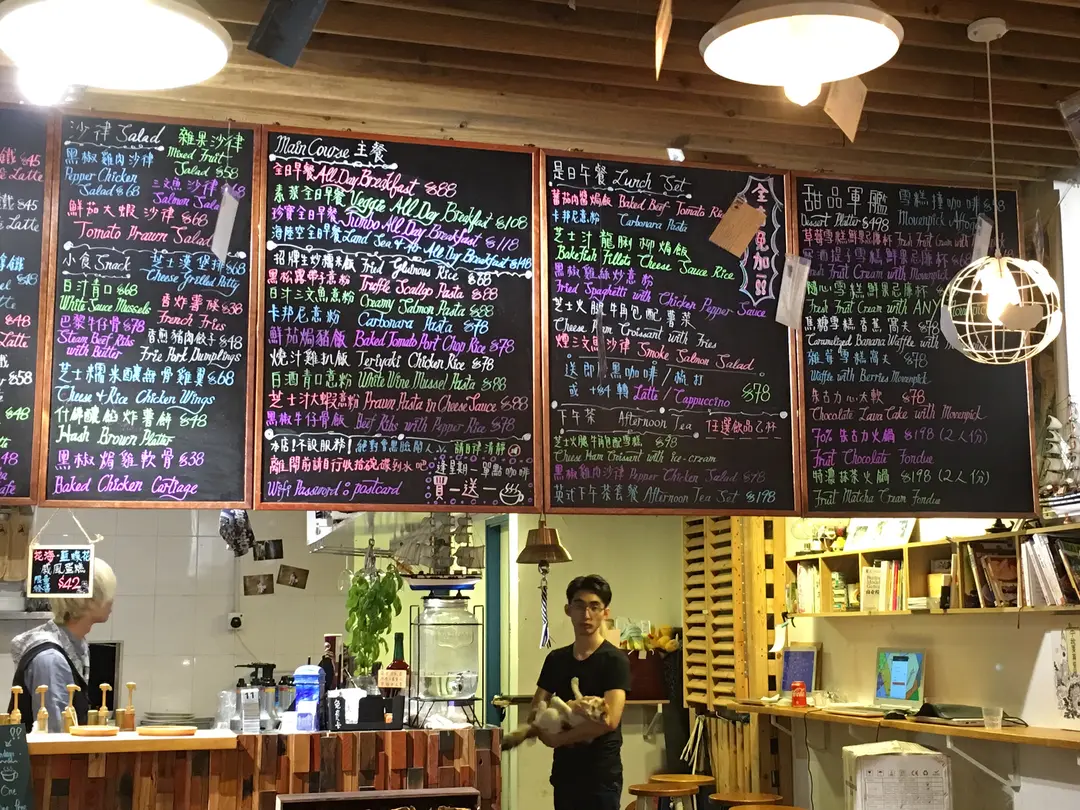 $45
Latte
$45
Latte
$48
$48
Latte
$58
$48
$48
沙律 Salad
雜果沙律
Mixed Fruit
Salad $58
黑椒雞肉沙律
Pepper Chicken
Salad $68
三文魚沙律 $68
Salmon Salad
鮮茄大蝦沙律 $68
Tomato Prawn Salad
小食 Snack
芝士漢堡排 $68
Cheese Grilled Patty
日汁青口 $68
White Sauce Mussels
香炸薯條 $38
French Fries
巴黎牛仔骨 $78
Steam Beef Ribs
with Butter
香煎豬肉餃子 $48
Frie Pork Dumplings
芝士糯米釀無骨雞翼 $68
Cheese & Rice Chicken Wings
什餅釀餡炸薯餅 $48
Hash Brown Platter
黑椒焗雞軟骨 $38
Baked Chicken Cartlage
Main Course 主餐
全日早餐 All Day Breakfast $88
素菜全日早餐 Veggie All Day Breakfast $108
珍寶全日早餐 Jumbo All Day Breakfast $118
海陸空全日早餐 Land Sea & Air All Day Breakfast $148
招牌生炒糯米飯 Fried Glutinous Rice $88
黑松露帶子意粉 Truffle Scallop Pasta $88
日汁三文魚意粉 Creamy Salmon Pasta $88
卡邦尼意粉 Carbonara Pasta $78
鮮茄焗豬飯 Baked Tomato Pork Chop Rice $78
燒汁雞扒飯 Teriyaki Chicken Rice $78
日酒青口意粉 White Wine Mussel Pasta $88
芝士汁大蝦意粉 Prawn Pasta in Cheese Sauce $88
黑椒牛仔骨飯 Beef Ribs with Pepper Rice $78
本店不設服務 絕對常黑臉鬧人 請自律清靜
離開前請自行收拾碗碟到水吧
逢星期一單點咖啡
買一送一
Wifi Password : postcard
是日午餐 Lunch Set
蕃茄肉醬焗飯 Baked Beef Tomato Rice
卡邦尼意粉 Carbonara Pasta
芝士汁龍脷柳焗飯
Bakefish Fillets Cheese Sauce Rice
黑椒雞絲炒意粉
Fried Spaghetti with Chicken Pepper Sauce
芝士火腿牛角包配薯菜
Cheese Ham Croissant with Fries
煙三文魚沙律 Smoke Salmon Salad
送即黑咖啡/梳打
或 +$4 轉 Latte / Cappuccino $78
下午茶 Afternoon Tea 任選飲品乙杯
芝士火腿牛角包配雪糕 $98
Cheese Ham Croissant with Ice-cream
黑椒雞肉沙律 Pepper Chicken Salad $98
英式下午茶套餐 Afternoon Tea Set $198
甜品軍艦
Dessert Platter $498
Movenpick
Fresh Fruit Cream with
Fresh Fruit Cream with Movenpick
Fresh Fruit Cream with ANY
Caramelized Banana Waffle with Movenpick
雜莓雪糕窩夫 $78
Waffle with Berries Movenpick
朱古力心太軟 $78
Chocolate Lava Cake with Movenpick
70% 朱古力火鍋 $198 (2人份)
Fruit Chocolate Fondue
特濃抹茶火鍋 $198 (2人份)
Fruit Matcha Cream Fondue
花海·藍蝶花
戚風蛋糕
$42
11
One